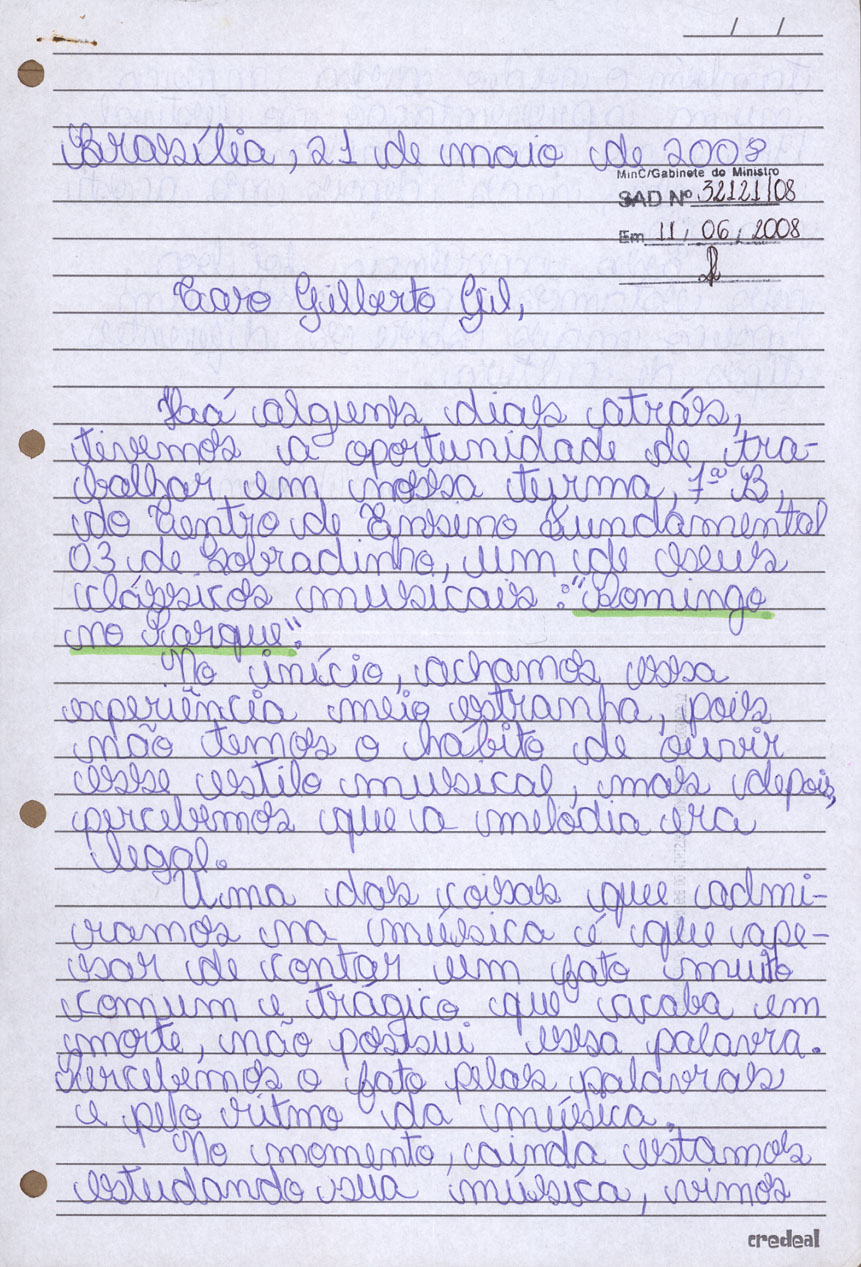 / /
Brasília, 21 de maio de 2008
MinC/Gabinete do Ministro
SAD Nº 32121/08
Em 11, 06, 2008
Caro Gilberto Gil,
Há alguns dias atrás,
tivemos a oportunidade de tra-
balhar em nossa turma, 7ª B,
do Centro de Ensino Fundamental
03 de Sobradinho, um de seus
clássicos musicais: "Domingo
no Parque".
No início, achamos essa
experiência meio estranha, pois
não temos o hábito de ouvir
esse estilo musical, mas depois,
percebemos que a melódia era
legal.
Uma das coisas que admi-
ramos na música é que ape-
sar de contar um fato muito
comum e trágico que acaba em
morte, não possui essa palavra.
Percebemos o fato pelas palavras
e pelo ritmo da música.
No momento, ainda estamos
estudando sua música, vimos
credeal